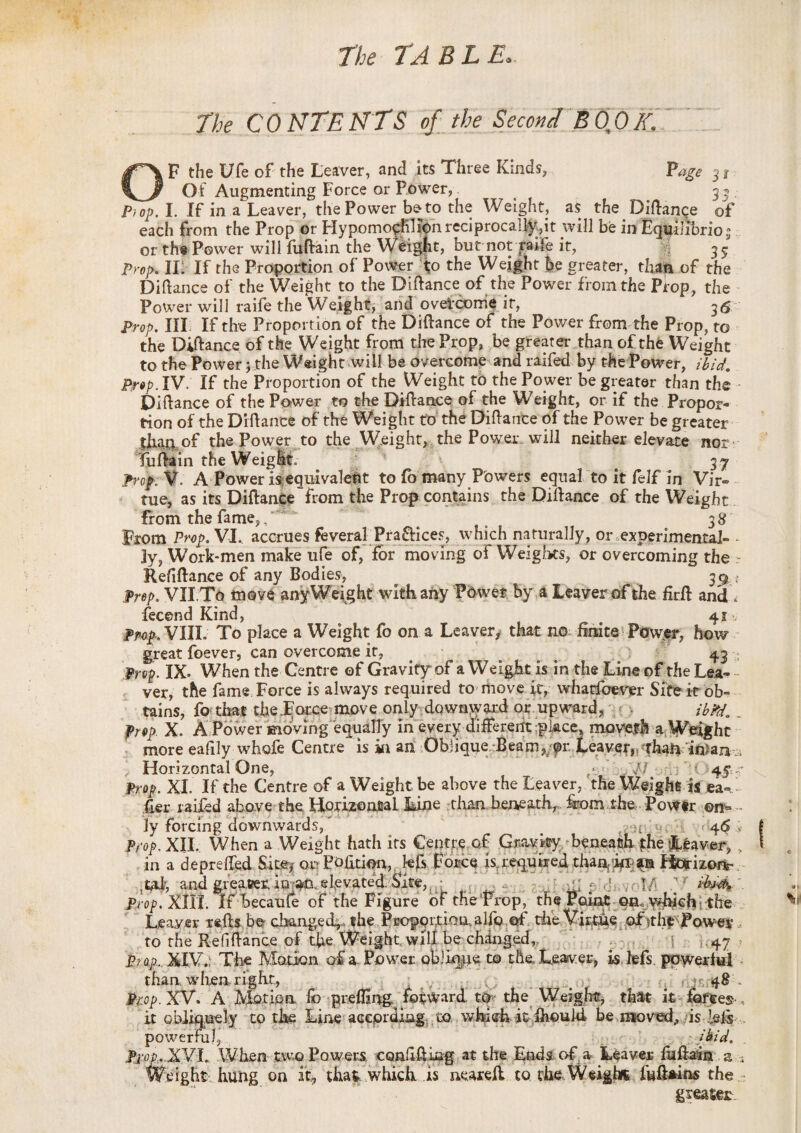 The TABLE.
The CONTENTS of the Second BOOK.
OF the Uſe of the Leaver, and its Three Kinds, Page 31
Of Augmenting Force or Power, 33
Prop. I. If in a Leaver, the Power be to the Weight, as the Diſtance of
each from the Prop or Hypomochlion reciprocally, it will be in Equilibrio;
or the Power will ſuſtain the Weight, but not raiſe it, 35
Prop. II. If the Proportion of Power to the Weight be greater, than of the
Diſtance of the Weight to the Diſtance of the Power from the Prop, the
Power will raiſe the Weight, and overcome it, 36
Prop. III If the Proportion of the Diſtance of the Power from the Prop, to
the Diſtance of the Weight from the Prop, be greater than of the Weight
to the Power; the Weight will be overcome and raiſed by the Power, ibid.
Prop. IV. If the Proportion of the Weight to the Power be greater than the
Diſtance of the Power to the Diſtance of the Weight, or if the Propor-
tion of the Diſtance of the Weight to the Diſtance of the Power be greater
than of the Power to the Weight, the Power will neither elevate nor
ſuſtain the Weight. 37
Prop. V. A Power is equivalent to ſo many Powers equal to it ſelf in Vir-
tue, as its Diſtance from the Prop contains the Diſtance of the Weight
from the ſame, 38
From Prop. VI. accrues ſeveral Practices, which naturally, or experimental-
ly, Work-men make uſe of, for moving of Weights, or overcoming the
Reſiſtance of any Bodies, 39
Prop. VII. To move any Weight with any Power by a Leaver of the firſt and
ſecend Kind, 41
Prop. VIII. To place a Weight ſo on a Leaver, that no finite Power, how
great ſoever, can overcome it, 43
Prop. IX. When the Centre of Gravity of a Weight is in the Line of the Lea-
ver, the ſame Force is always required to move it, whatſoever Site it ob-
tains, ſo that the Force move only downward or upward, ibid.
Prop X. A Power moving equally in every different place, moveth a Weight
more eaſily whoſe Centre is in an Oblique Beam, or Leaver, than in an
Horizontal One, 45
Prop. XI. If the Centre of a Weight be above the Leaver, the Weight is ea-
ſier raiſed above the Horizontal Line than beneath, from the Power on-
ly forcing downwards, 46
Prop. XII. When a Weight hath its Centre of Gravity beneath the Leaver,
in a depreſſed Site, or Poſition, leſs Force is required than in an Horizon-
tal, and greater in an elevated Site, ibid,
Prop. XIII. If becauſe of the Figure of the Prop, the Point on which the
Leaver reſts be changed, the Proportion alſo of the Virtue of the Power
to the Reſiſtance of the Weight will be changed, 47
Prop. XIV. The Motion of a Power oblique to the Leaver, is leſs powerful
than when right, 48
Prop. XV. A Motion ſo preſſing forward to the Weight, that it forces
it obliquely to the Line according to which it ſhould be moved, is leſs
powerful, ibid.
Prop. XVI. When two Powers conſiſting at the Ends of a Leaver ſuſtain a
Weight hung on it, that which is neareſt to the Weight ſuſtains the
greater